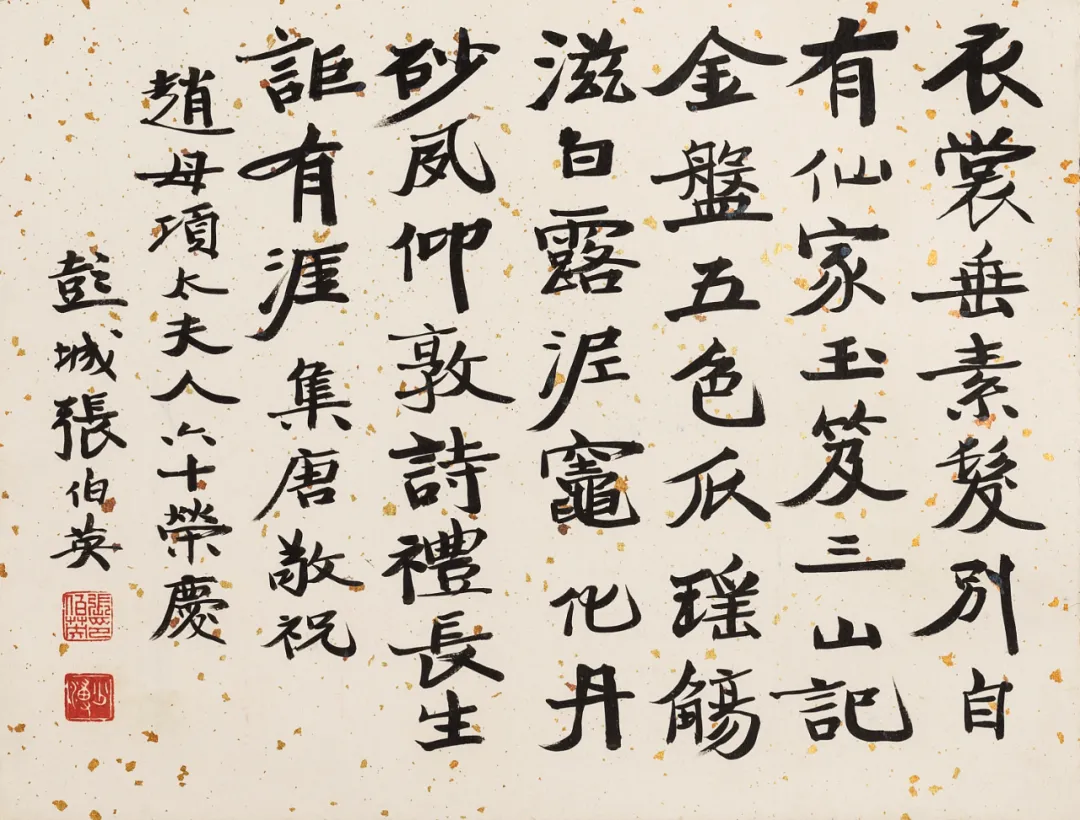 衣裳垂素髮別自
有仙家玉笈三山記
金盤五色瓜瑤觴
滋白露泥竈化丹
砂夙仰敦詩禮長生
詎有涯 集唐敬祝
趙母項太夫人六十榮慶
彭城張伯英
張印伯英
少溥